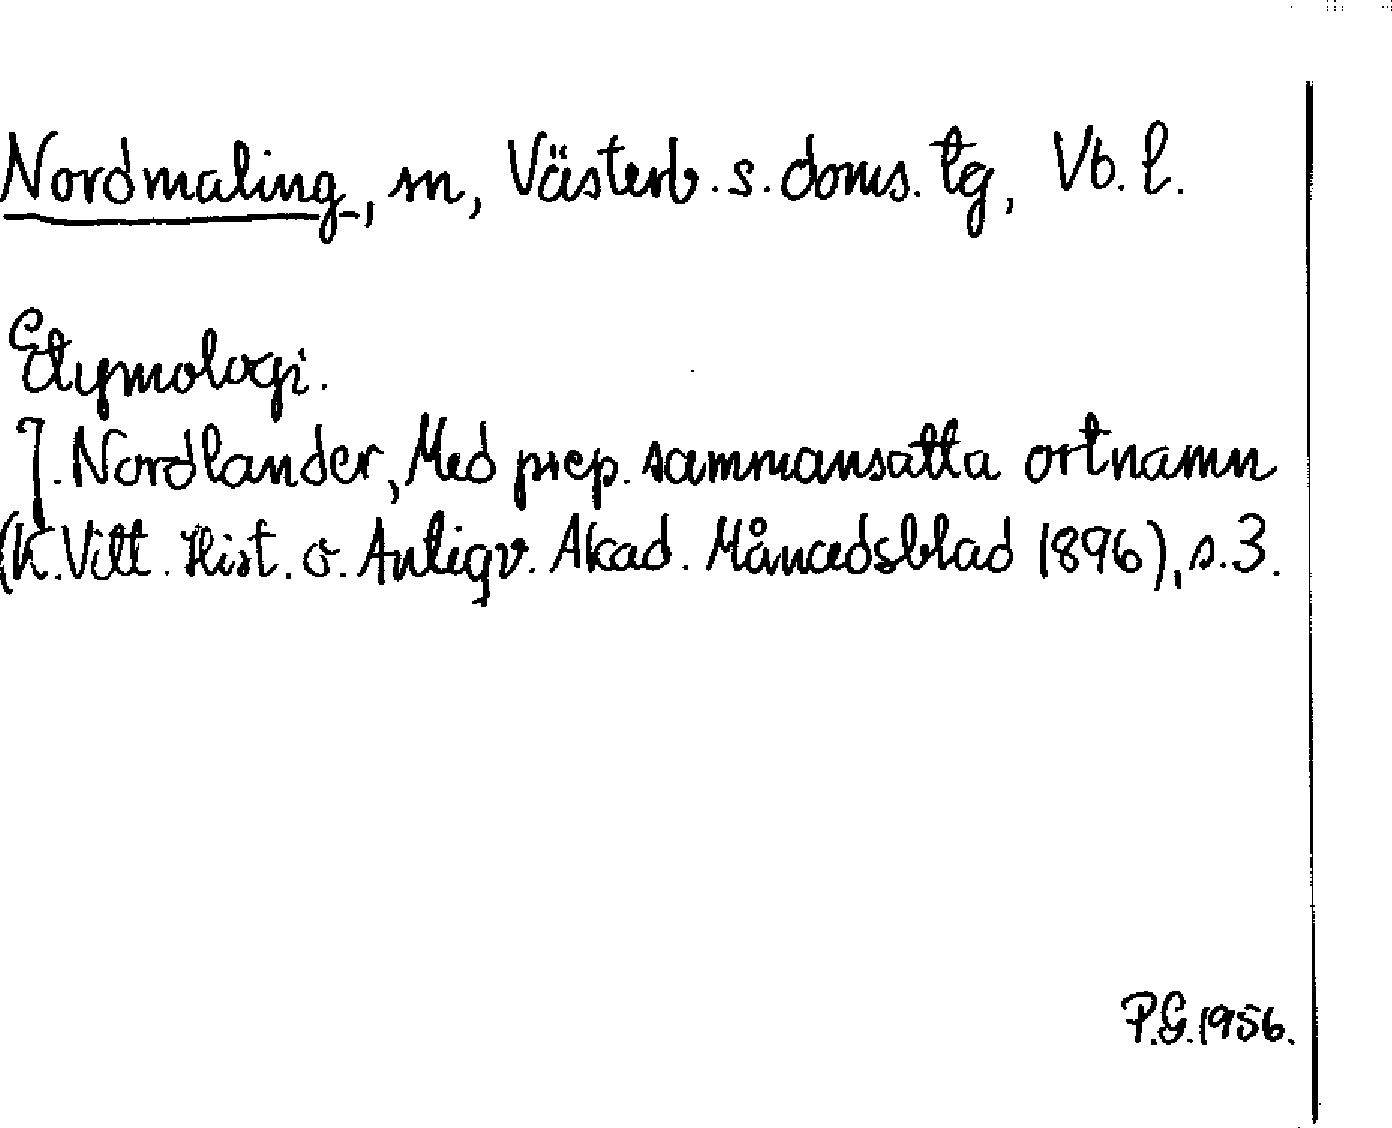 Nordmaling, sn, Västerb. s. doms. tg, Vb. l.
Etymologi.
J. Nordlander, Med prep. sammansatta ortnamn
(K. Vitt. Hist. o. Antiqv. Akad. Månadsblad 1896), s. 3.
P.G. 1956.